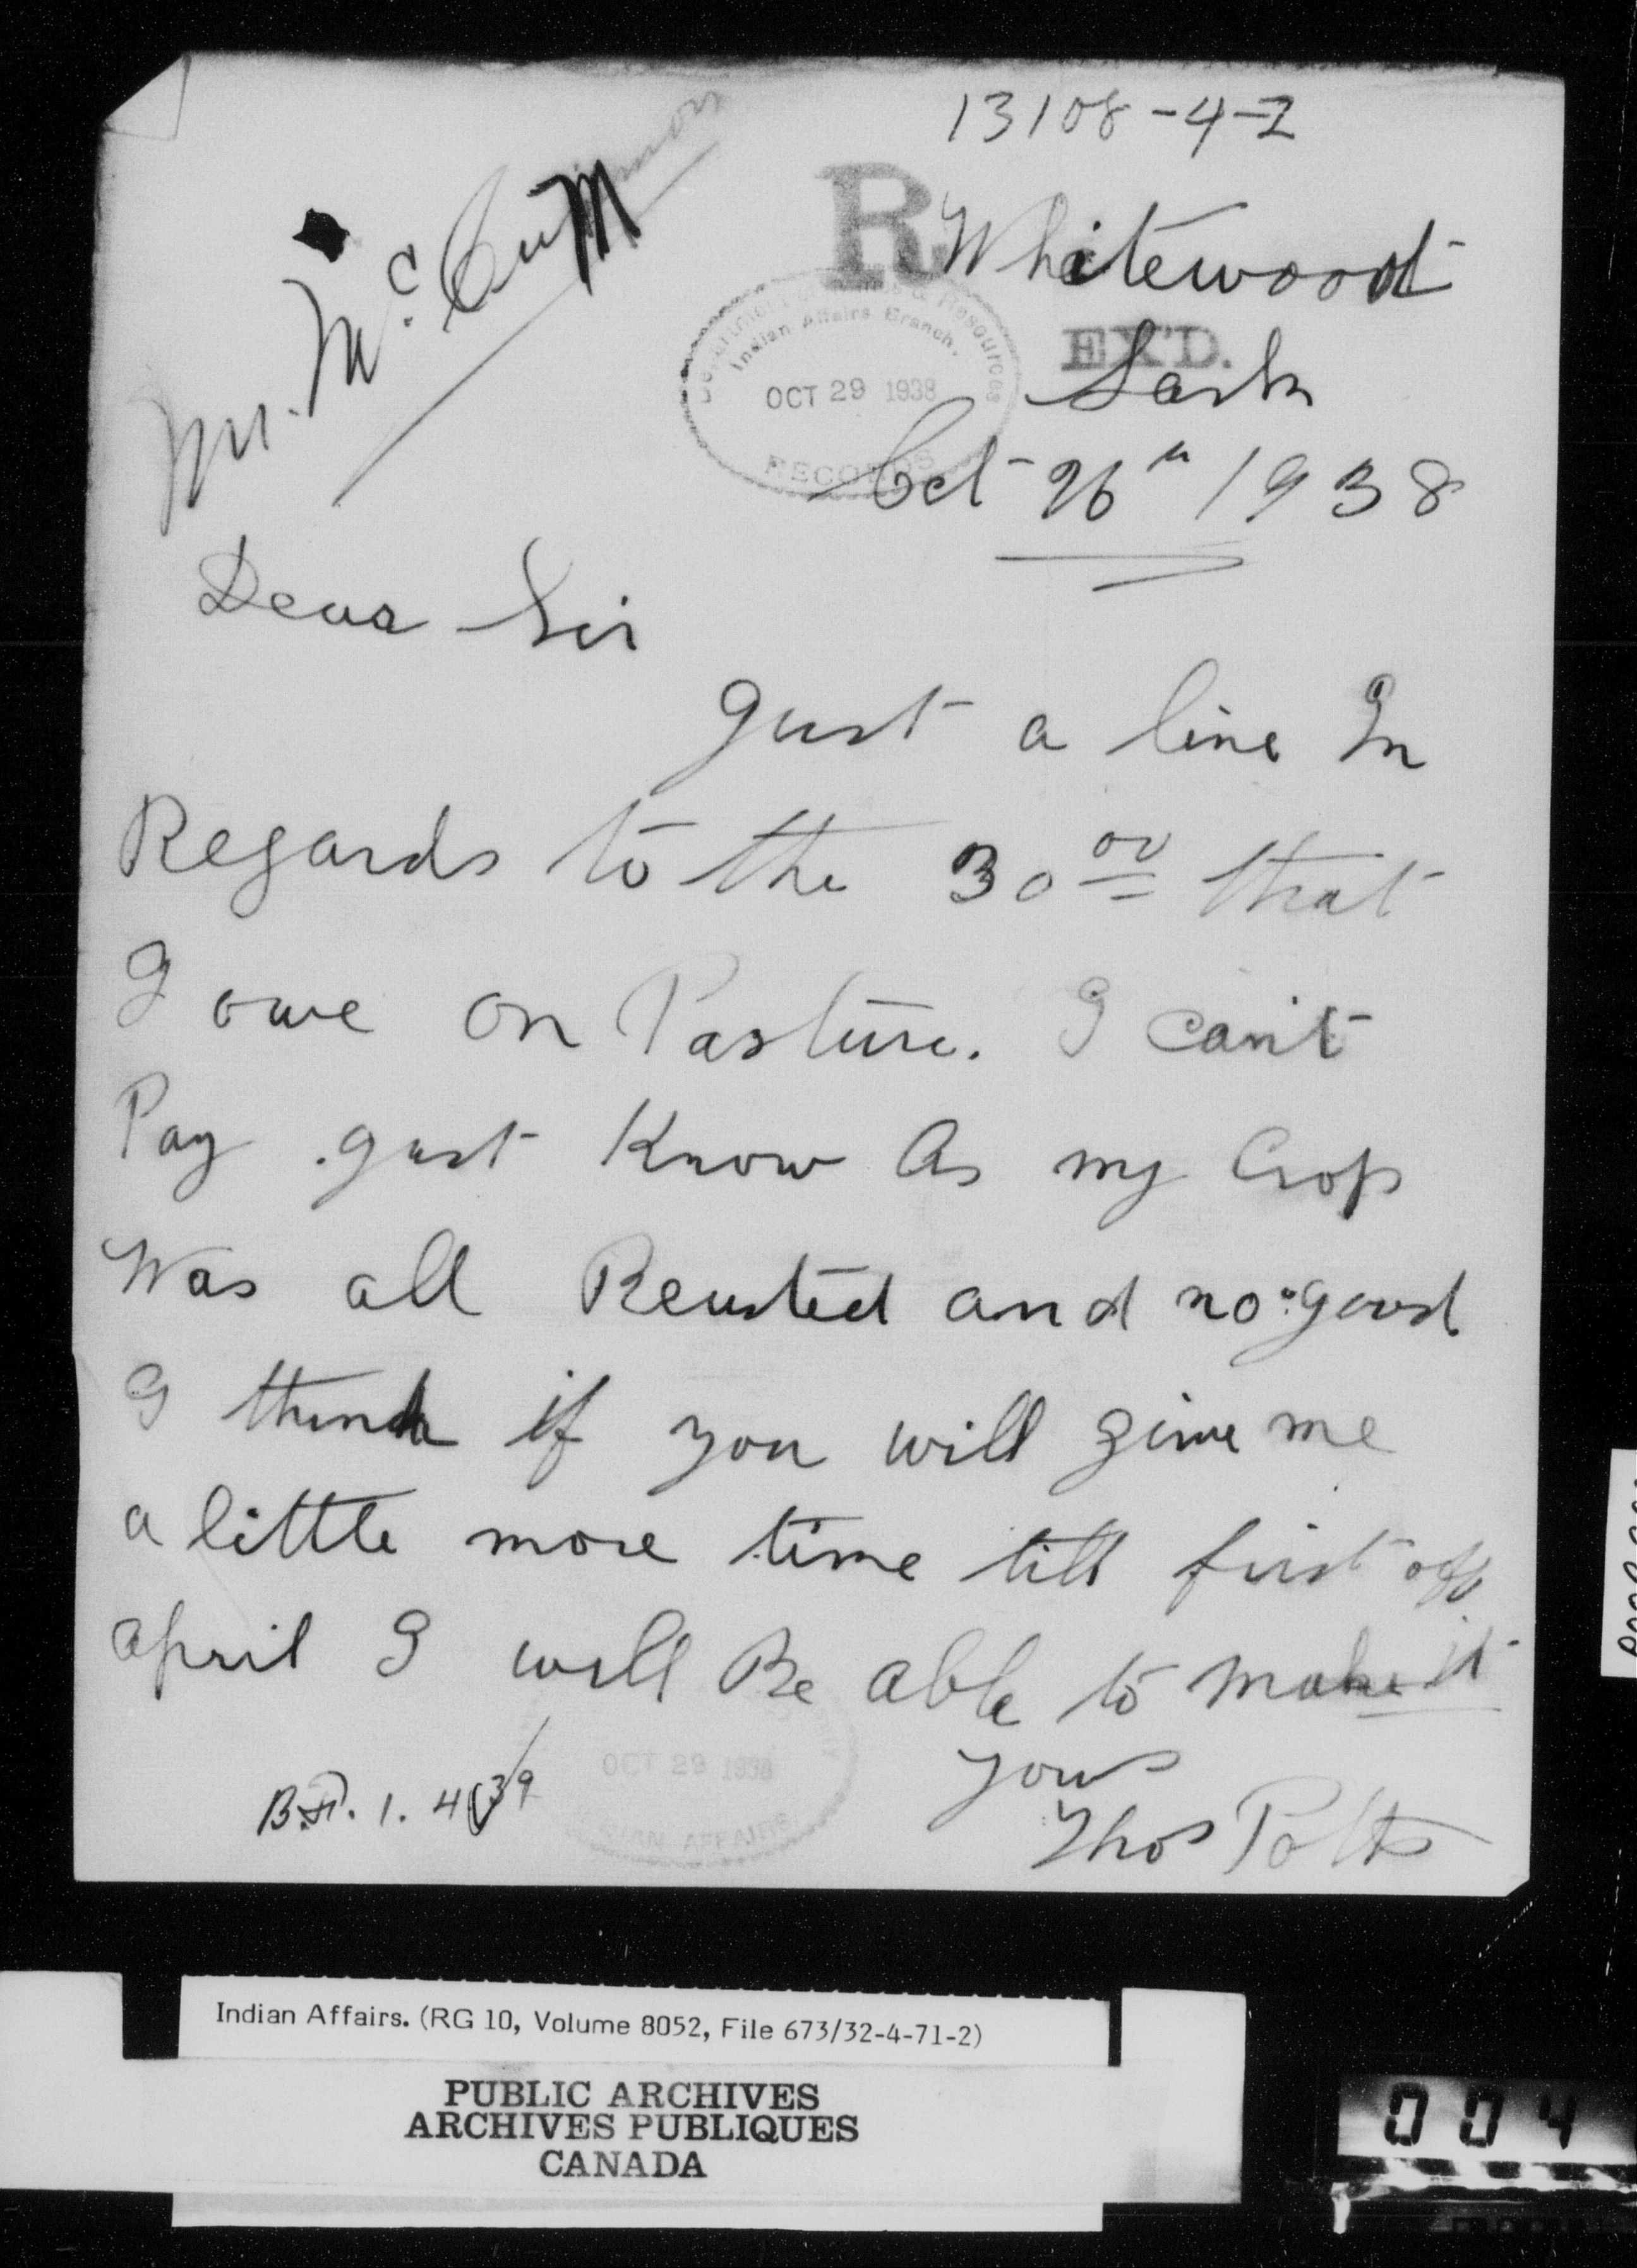 13108-4-2
Mr. McCrimmon
R
Whitewood
EX'D.
Sask
Department of Mines & Resources
Indian Affairs Branch.
OCT 29 1938
RECORDS
Oct 26th 1938
Dear Sir
Just a line In
Regards to the 30 00 that
I owe on Pasture. I can't
Pay Just Know As my Crop
Was all Reusted and no good
I think if you will give me
a little more time till first off
april I will Be able to make it
yours
Thos Potts
OCT 29 1938
INDIAN AFFAIRS
1. 4 39
Indian Affairs. (RG 10, Volume 8052, File 673/32-4-71-2)
PUBLIC ARCHIVES
ARCHIVES PUBLIQUES
CANADA
004